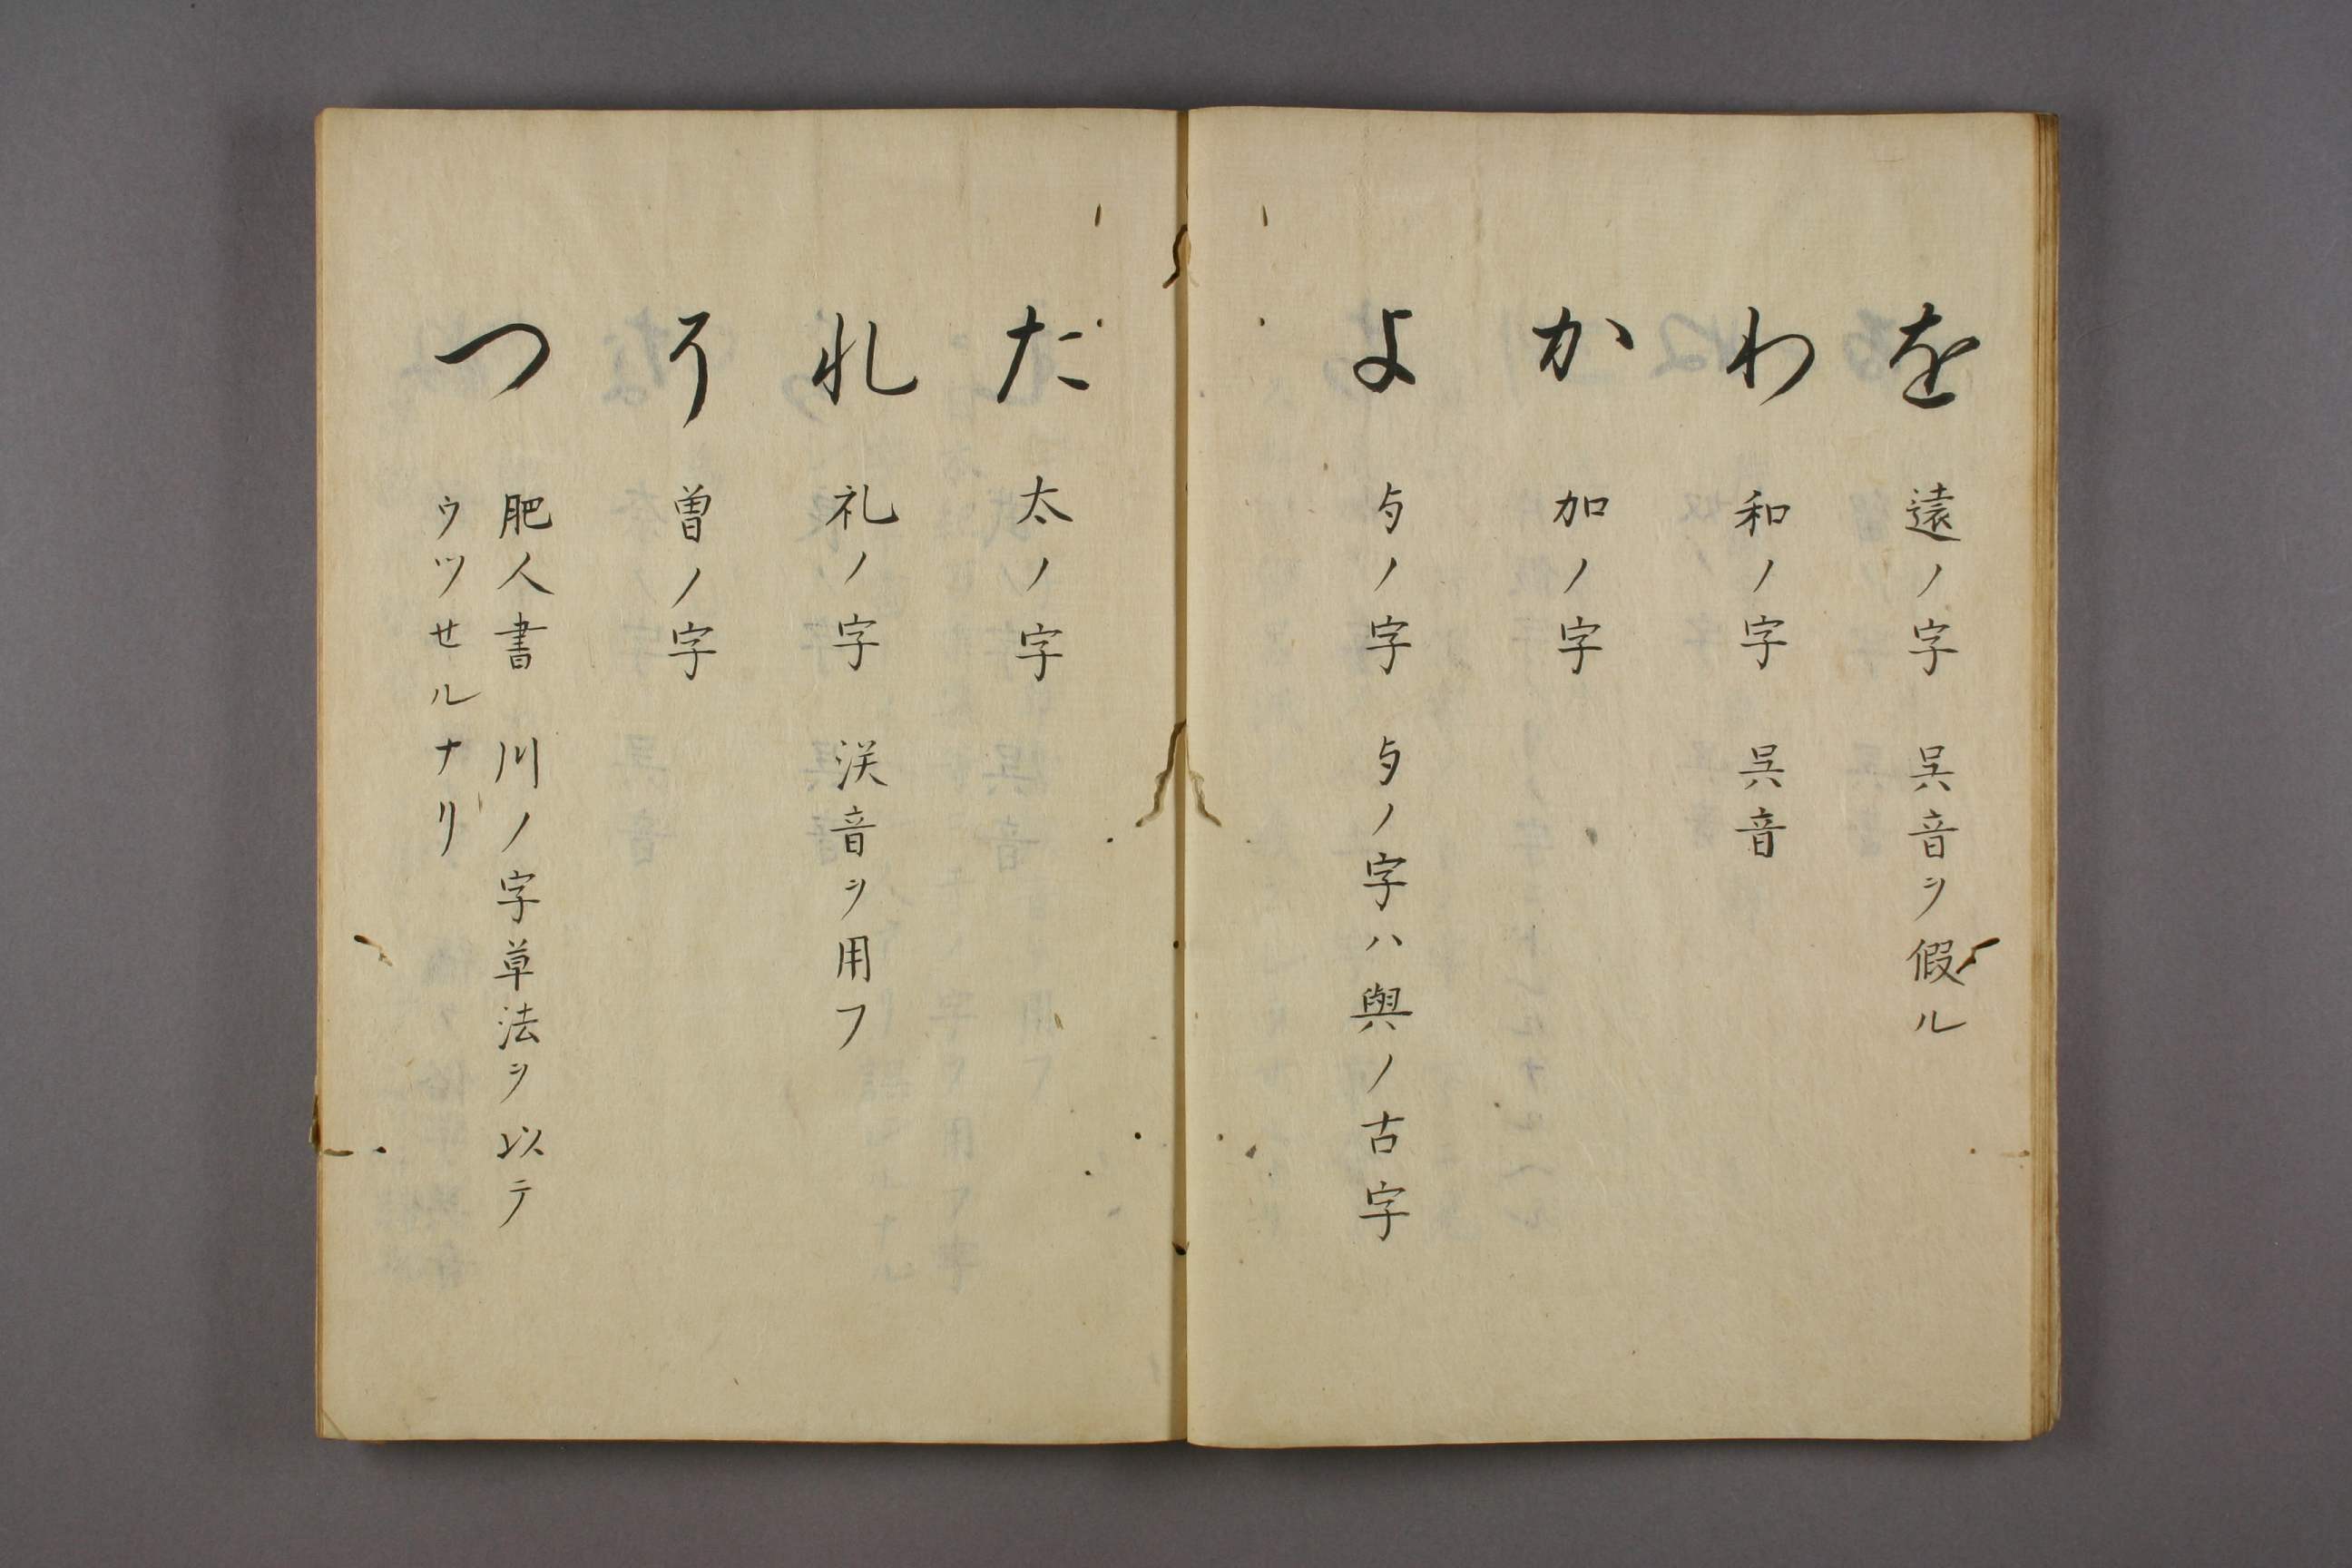 を 遠ノ字 呉音ヲ假ル
わ 和ノ字 呉音
か 加ノ字
よ 与ノ字 与ノ字ハ與ノ古字
た 太ノ字
れ 礼ノ字 漢音ヲ用フ
そ 曽ノ字
つ 肥人書 川ノ字草法ヲ以テ
ウツせルナリ